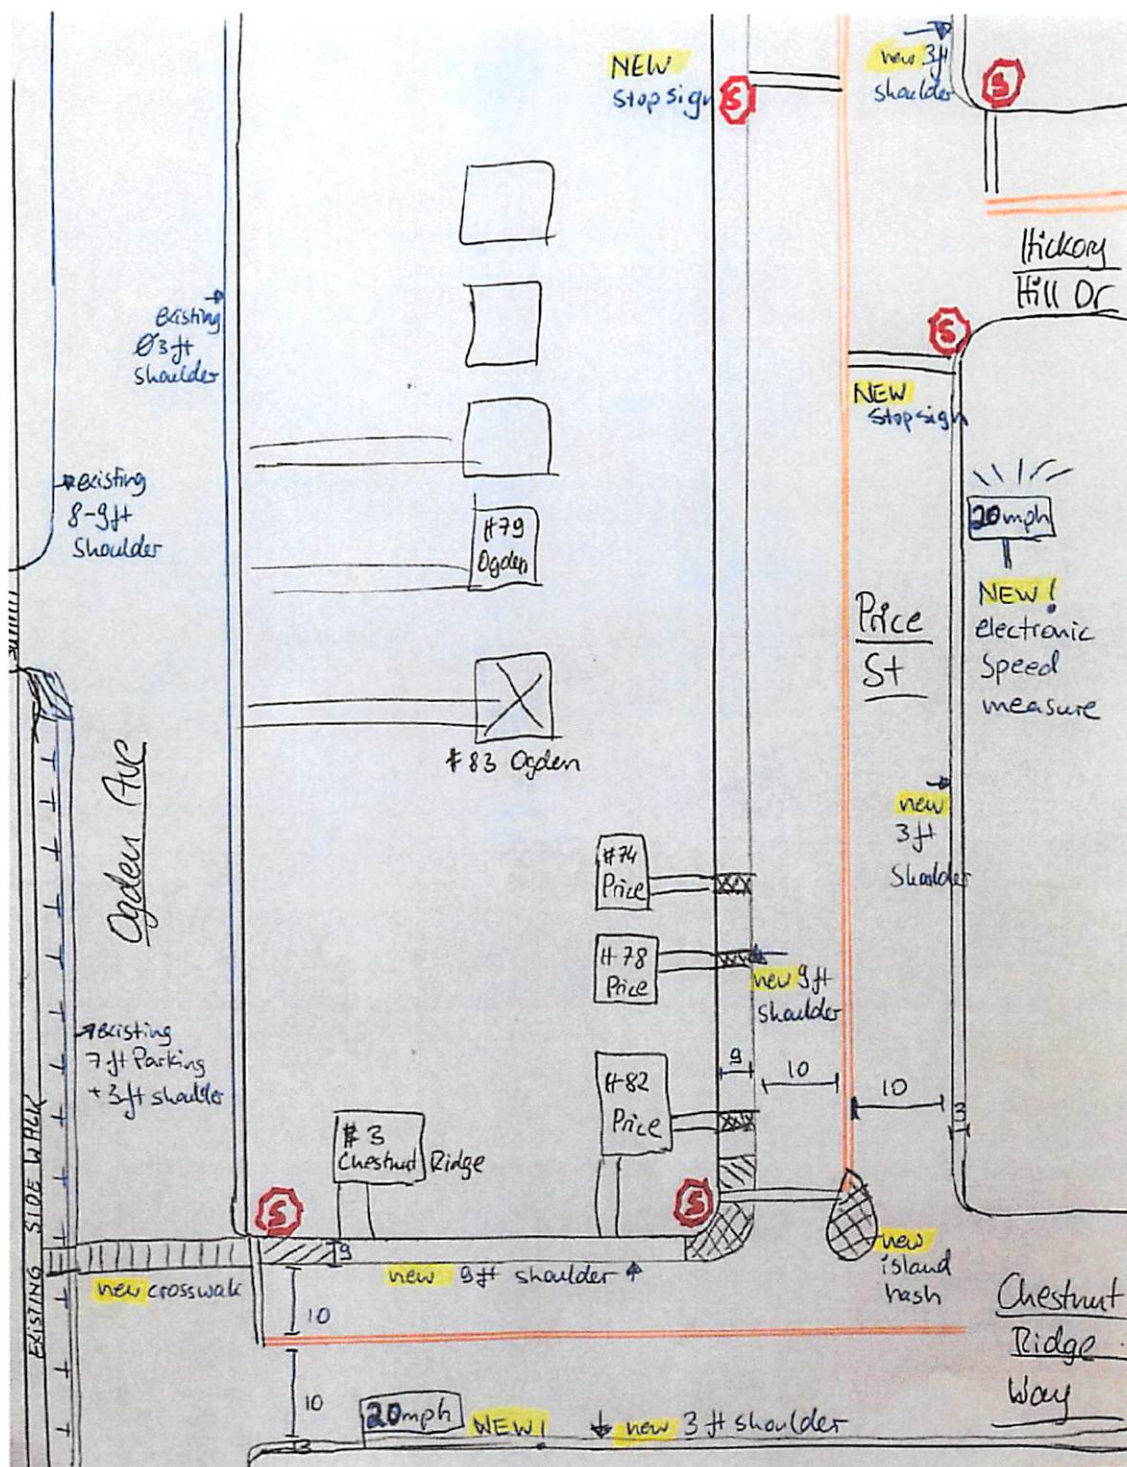 NEW
Stop sign
S
new 3ft
shoulder
S
Hickory
Hill Dr
existing
Ø3ft
shoulder
S
NEW
Stop sign
existing
8-9ft
shoulder
#79
Ogden
20mph
NEW!
electronic
speed
measure
Price
St
#83 Ogden
Ogden Ave
new
3 ft
Shoulder
#74
Price
#78
Price
new 9ft
shoulder
existing
7ft Parking
+ 3ft shoulder
9
10
10
3
#82
Price
#3
Chestnut Ridge
EXISTING SIDE WALK
S
S
new crosswalk
9
new 9ft shoulder
new
island
hash
10
Chestnut
Ridge
Way
10
20mph NEW!
new 3 ft shoulder
3